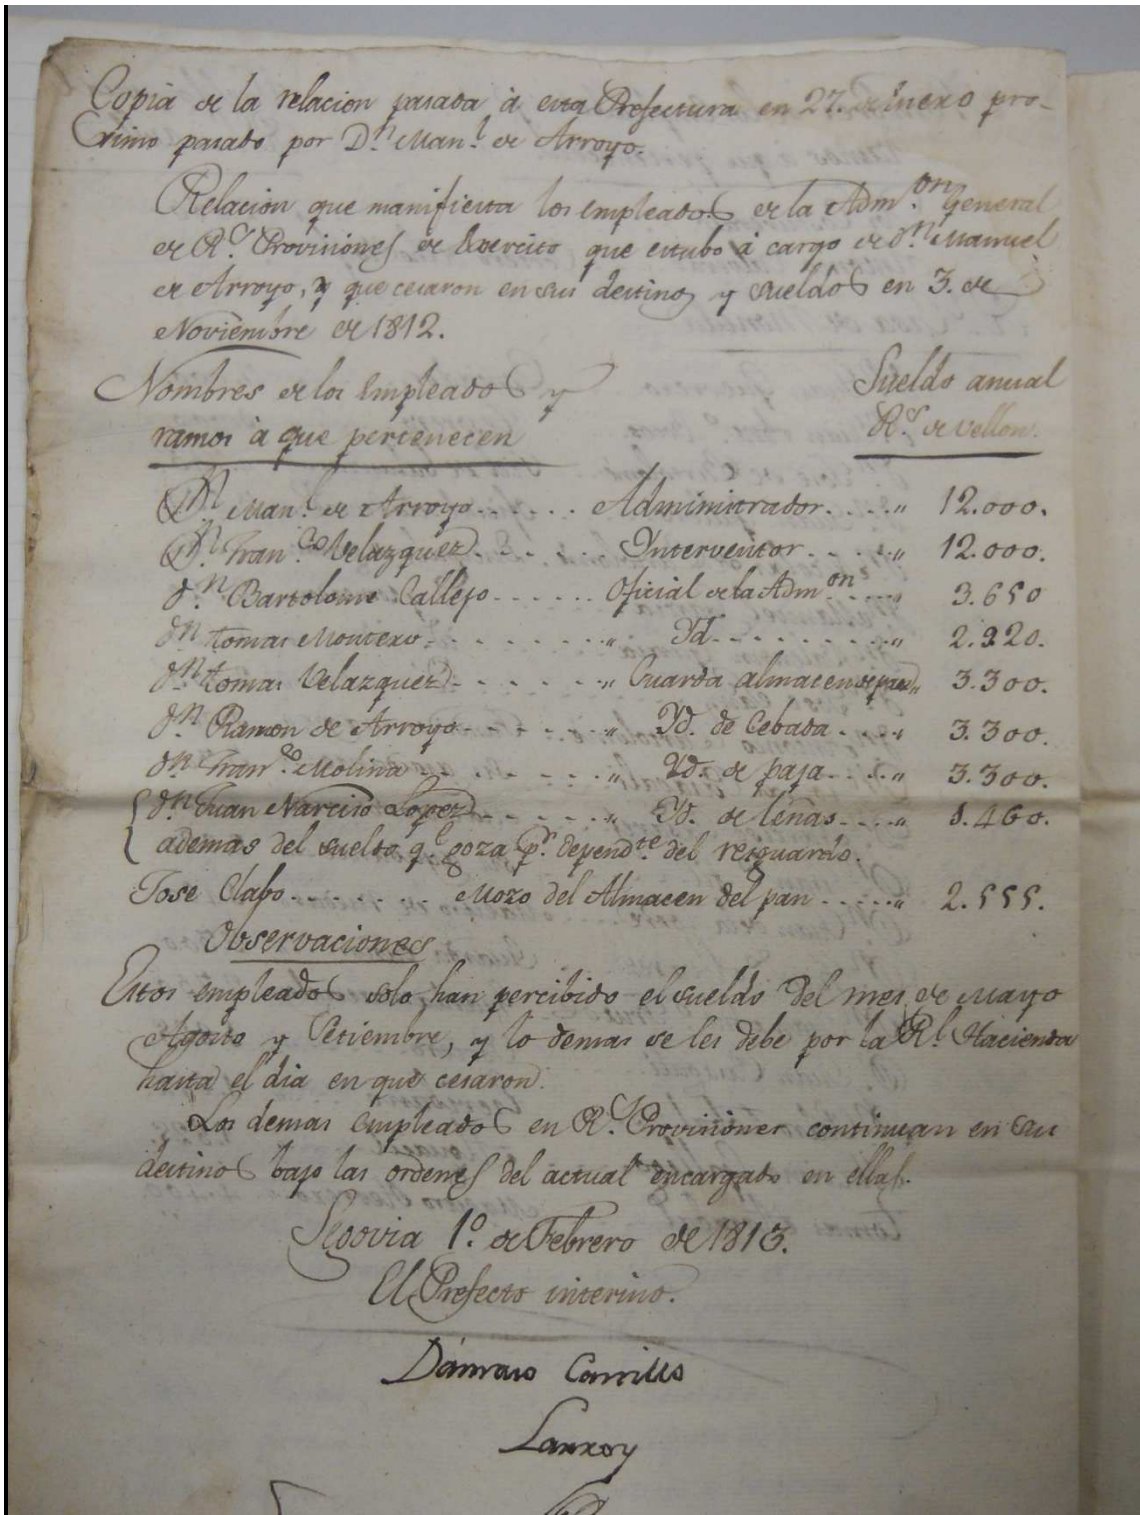 Copia de la relacion pasada à esta Prefectura en 27. de Enero pro-
ximo pasado por D.n Man.l de Arroyo.
Relacion que manifiesta los empleados de la Adm.on General
de R.s Provisiones de Exercito que estubo à cargo de d.n Manuel
de Arroyo, y que cesaron en sus destinos y sueldos en 3. de
Noviembre de 1812.
Nombres de los Empleados y
ramos à que pertenecen
Sueldo anual
R.s de vellon.
D.n Man.l de Arroyo...... Administrador....„ 12.000.
D.n Fran.co Velazquez...... Ynterventor....„ 12.000.
d.n Bartolome Callejo...... Oficial de la Adm.on...„ 3.650
d.n tomas Montero........„ Yd.........„ 2.920.
d.n tomas Velazquez......„ Guarda almacen de pan„ 3.300.
d.n Ramon de Arroyo......„ Yd. de Cebada....„ 3.300.
d.n Fran.co Molina......„ Yd. de paja....„ 3.300.
d.n Juan Narciso Lopez......„ Yd. de leñas....„ 1.460.
ademas del sueldo q.e goza p.r depend.te del resguardo.
Jose Clapo........ Mozo del Almacen del pan.....„ 2.555.
Observaciones
Estos empleados solo han percibido el sueldo del mes de Mayo
Agosto y Setiembre, y lo demas se les debe por la R.l Hacienda
hasta el dia en que cesaron.
Los demas empleados en R.s Provisiones continuan en sus
destinos bajo las ordenes del actual encargado en ellas.
Segovia 1.o de Febrero de 1813.
El Prefecto interino.
Dámaso Carrillo
Lanroy